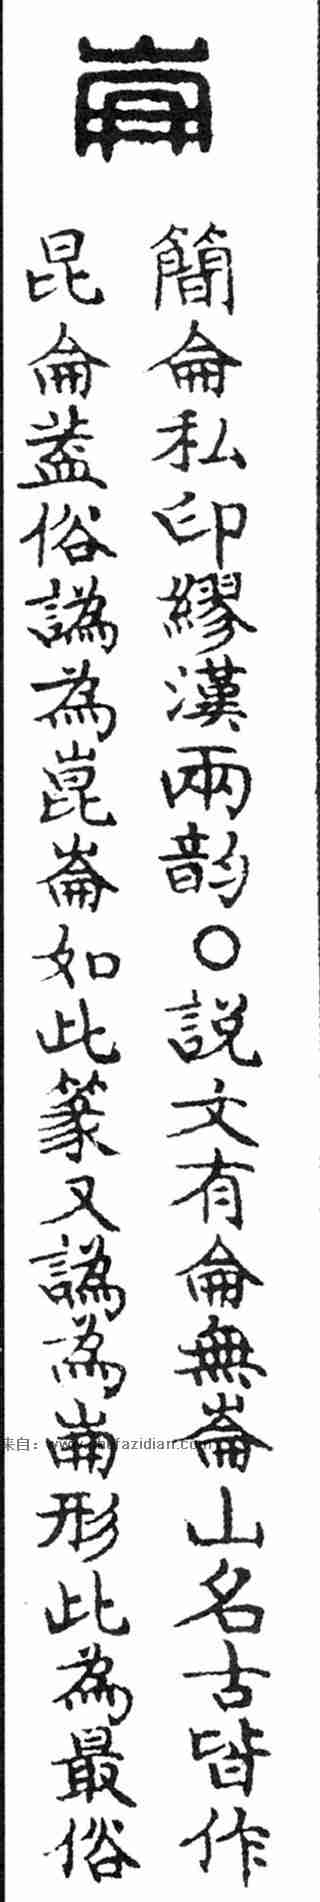 簡侖私印繆漢兩韵○說文有侖無崙山名古皆作
昆侖葢俗譌為崑崙如此篆又譌為崘形此為最俗
www.shufazidian.com